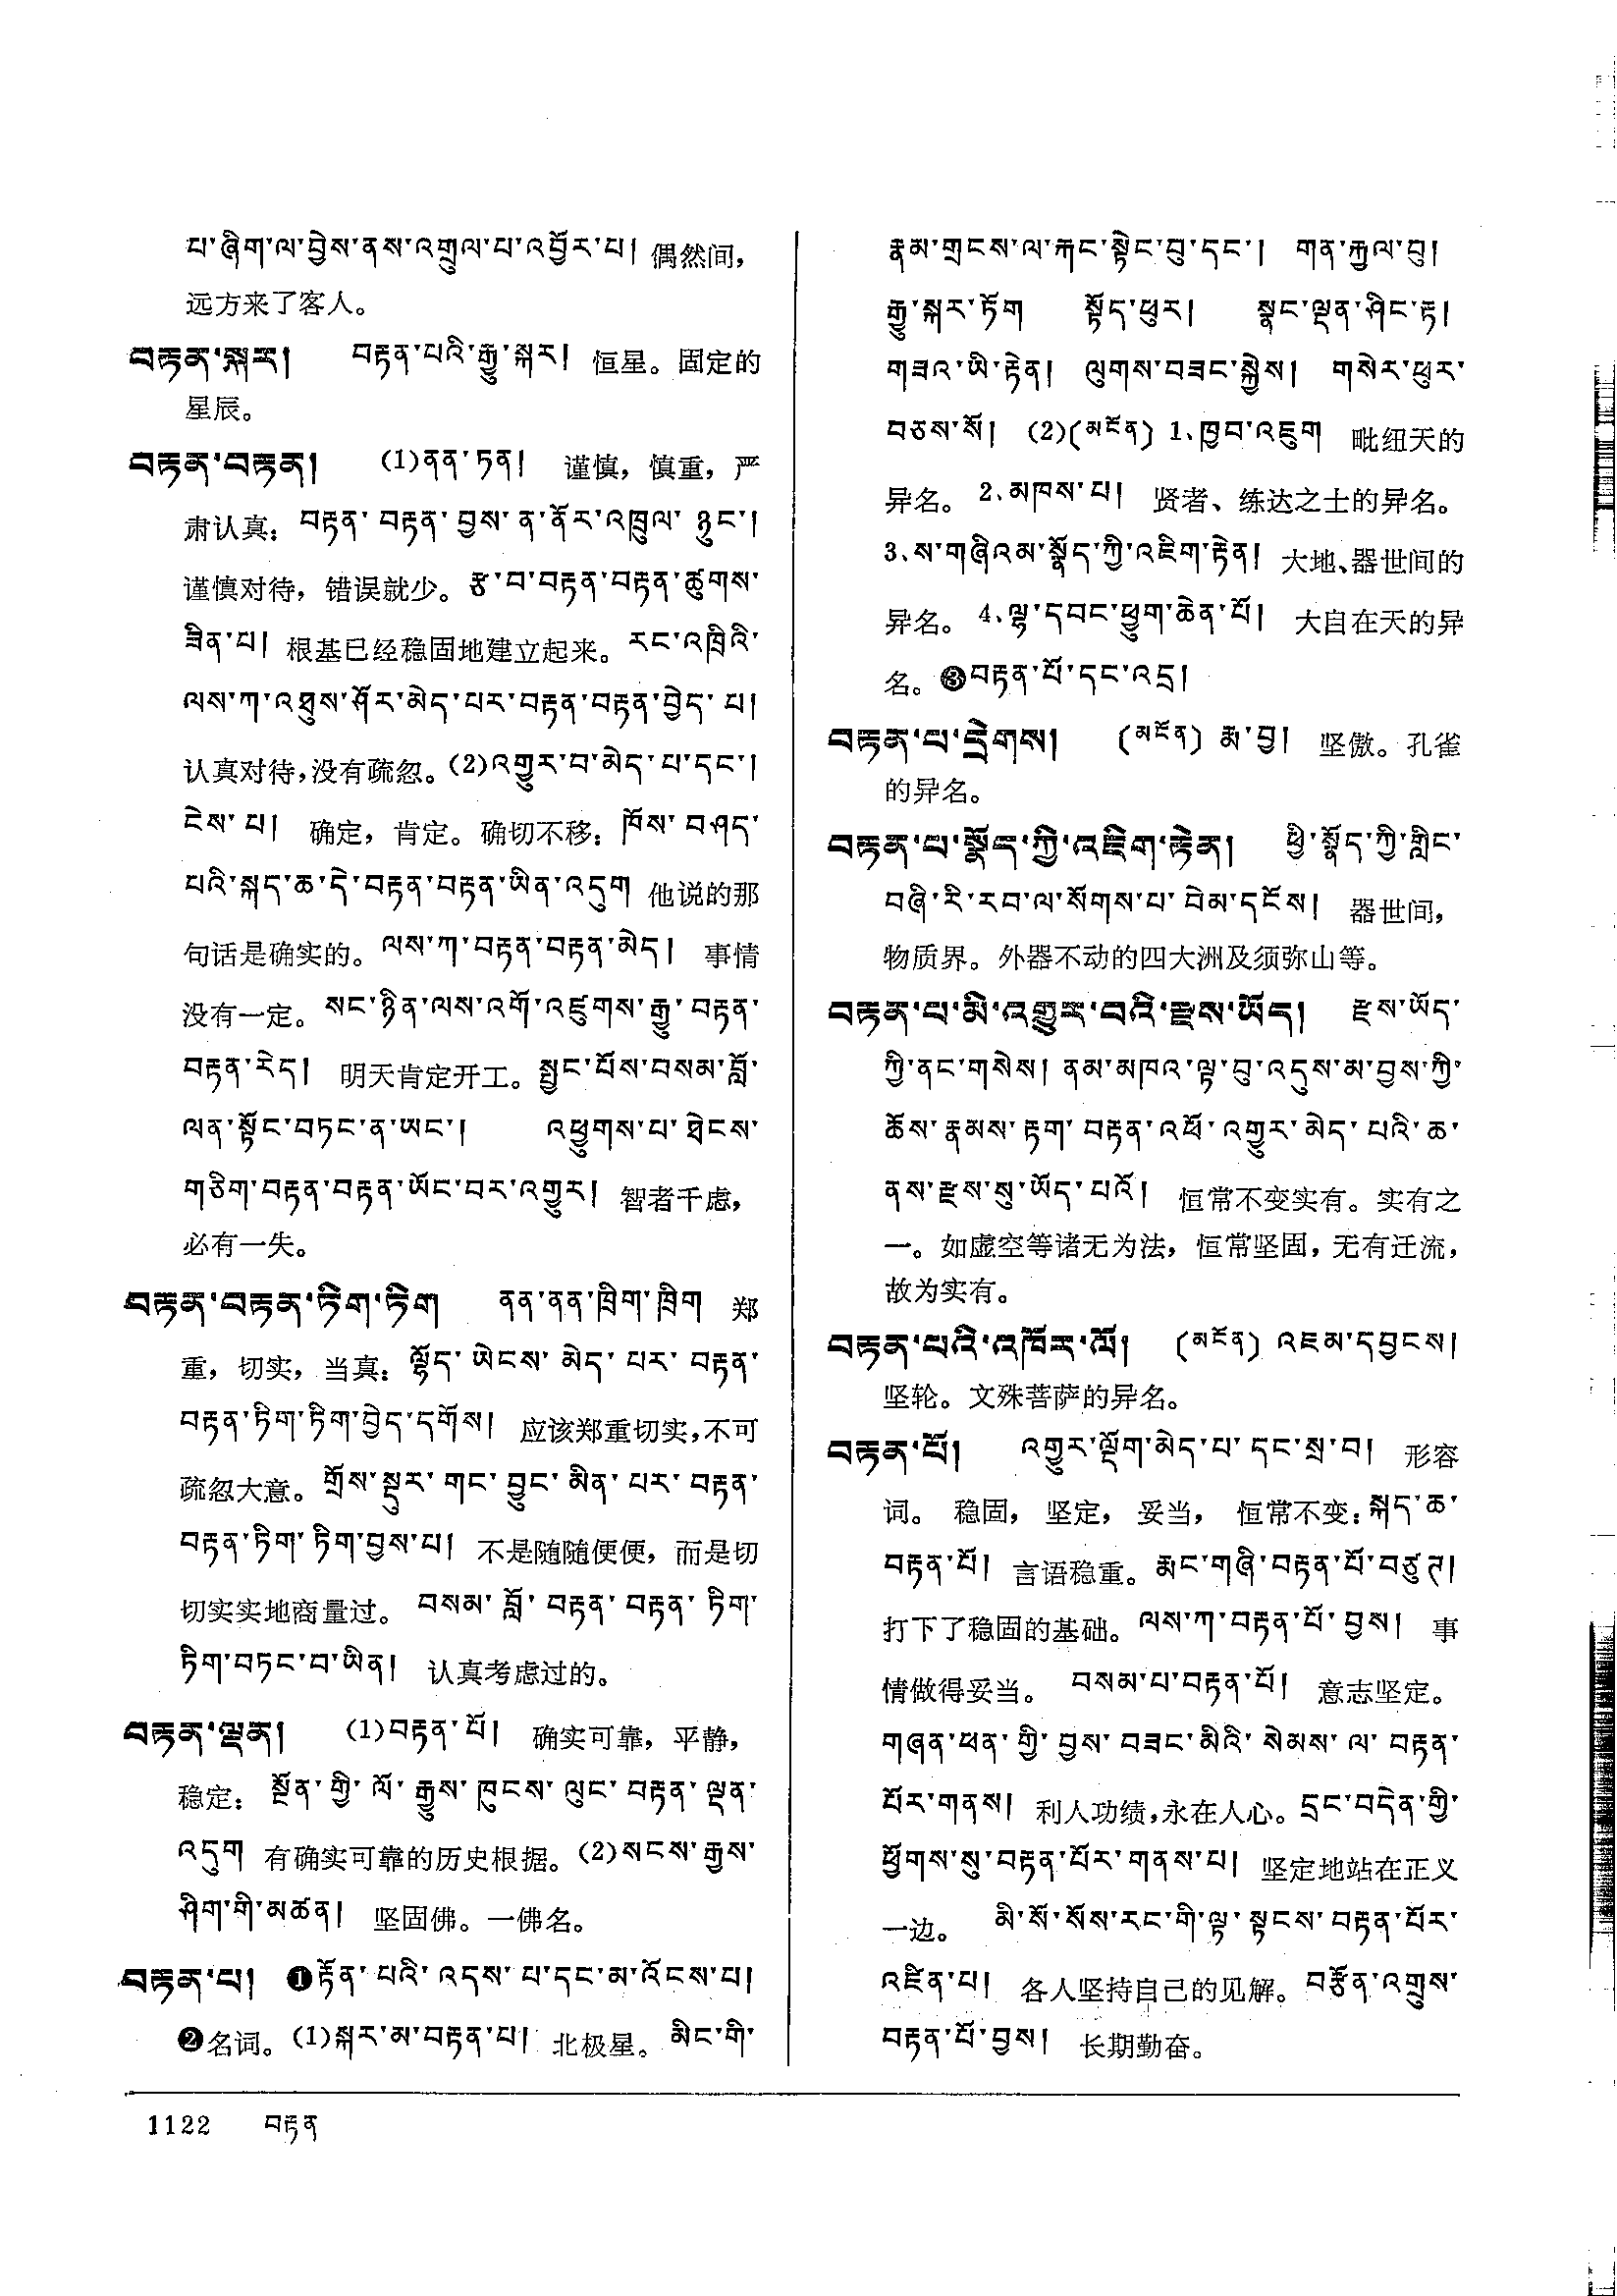 པ་ཞིག་ལ་བྱེས་ནས་འགྲུལ་པ་འབྱོར་པ། 偶然间，
远方来了客人。
བརྟན་སྐར། བརྟན་པའི་རྒྱུ་སྐར། 恒星。固定的
星辰。
བརྟན་བརྟན། (1)ནན་ཏན། 谨慎，慎重，严
肃认真：བརྟན་བརྟན་བྱས་ན་ནོར་འཁྲུལ་ཉུང་།
谨慎对待，错误就少。རྩ་བ་བརྟན་བརྟན་ཚུགས་
ཟིན་པ། 根基已经稳固地建立起来。རང་འཁྲིའི་
ལས་ཀ་འཐུས་ཤོར་མེད་པར་བརྟན་བརྟན་བྱེད་པ།
认真对待，没有疏忽。(2)འགྱུར་བ་མེད་པ་དང་།
ངེས་པ། 确定，肯定。确切不移：ཁོས་བཤད་
པའི་སྐད་ཆ་དེ་བརྟན་བརྟན་ཡིན་འདུག 他说的那
句话是确实的。ལས་ཀ་བརྟན་བརྟན་མེད། 事情
没有一定。སང་ཉིན་ལས་འགོ་འཛུགས་རྒྱུ་བརྟན་
བརྟན་རེད། 明天肯定开工。སྤྱང་པོས་བསམ་བློ་
ལན་སྟོང་བཏང་ན་ཡང་། འཕྱུགས་པ་ཐེངས་
གཅིག་བརྟན་བརྟན་ཡོང་བར་འགྱུར། 智者千虑，
必有一失。
བརྟན་བརྟན་ཏིག་ཏིག ནན་ནན་ཁྲིག་ཁྲིག 郑
重，切实，当真：ལྷོད་ཡེངས་མེད་པར་བརྟན་
བརྟན་ཏིག་ཏིག་བྱེད་དགོས། 应该郑重切实，不可
疏忽大意。གྲོས་སྡུར་གང་བྱུང་མིན་པར་བརྟན་
བརྟན་ཏིག་ཏིག་བྱས་པ། 不是随随便便，而是切
切实实地商量过。བསམ་བློ་བརྟན་བརྟན་ཏིག་
ཏིག་བཏང་བ་ཡིན། 认真考虑过的。
བརྟན་ལྡན། (1)བརྟན་པོ། 确实可靠，平静，
稳定：སྔོན་གྱི་ལོ་རྒྱུས་ཁུངས་ལུང་བརྟན་ལྡན་
འདུག 有确实可靠的历史根据。(2)སངས་རྒྱས་
ཤིག་གི་མཚན། 坚固佛。一佛名。
བརྟན་པ། ❶རྟོན་པའི་འདས་པ་དང་མ་འོངས་པ།
❷名词。(1)སྐར་མ་བརྟན་པ། 北极星。མིང་གི་
རྣམ་གྲངས་ལ་རྐང་སྟེང་བུ་དང་། གན་རྐྱལ་བུ།
རྒྱུ་སྐར་ཏོག སྟོད་ཕུར། སྣང་ལྡན་ཤིང་རྟ།
གཟའ་ཡི་རྟེན། ལུགས་བཟང་སྐྱེས། གསེར་ཕུར་
བཅས་སོ། (2)(མངོན) 1、ཁྱབ་འཇུག 毗纽天的
异名。2、མཁས་པ། 贤者、练达之士的异名。
3、ས་གཞིའམ་སྣོད་ཀྱི་འཇིག་རྟེན། 大地、器世间的
异名。4、ལྷ་དབང་ཕྱུག་ཆེན་པོ། 大自在天的异
名。❸བརྟན་པོ་དང་འདྲ།
བརྟན་པ་དྲེགས། (མངོན) རྨ་བྱ། 坚傲。孔雀
的异名。
བརྟན་པ་སྣོད་ཀྱི་འཇིག་རྟེན། ཕྱི་སྣོད་ཀྱི་གླིང་
བཞི་རི་རབ་ལ་སོགས་པ་བེམ་དངོས། 器世间，
物质界。外器不动的四大洲及须弥山等。
བརྟན་པ་མི་འགྱུར་བའི་རྫས་ཡོད། རྫས་ཡོད་
ཀྱི་ནང་གསེས། ནམ་མཁའ་ལྟ་བུ་འདུས་མ་བྱས་ཀྱི་
ཆོས་རྣམས་རྟག་བརྟན་འཕོ་འགྱུར་མེད་པའི་ཆ་
ནས་རྫས་སུ་ཡོད་པའོ། 恒常不变实有。实有之
一。如虚空等诸无为法，恒常坚固，无有迁流，
故为实有。
བརྟན་པའི་འཁོར་ལོ། (མངོན) འཇམ་དབྱངས།
坚轮。文殊菩萨的异名。
བརྟན་པོ། འགྱུར་ལྡོག་མེད་པ་དང་སྲ་བ། 形容
词。稳固，坚定，妥当，恒常不变：སྐད་ཆ་
བརྟན་པོ། 言语稳重。རྨང་གཞི་བརྟན་པོ་བཙུགས།
打下了稳固的基础。ལས་ཀ་བརྟན་པོ་བྱས། 事
情做得妥当。བསམ་པ་བརྟན་པོ། 意志坚定。
གཞན་ཕན་གྱི་བྱས་བཟང་མིའི་སེམས་ལ་བརྟན་
པོར་གནས། 利人功绩，永在人心。དྲང་བདེན་གྱི་
ཕྱོགས་སུ་བརྟན་པོར་གནས་པ། 坚定地站在正义
一边。མི་སོ་སོས་རང་གི་ལྟ་སྟངས་བརྟན་པོར་
འཛིན་པ། 各人坚持自己的见解。བརྩོན་འགྲུས་
བརྟན་པོ་བྱས། 长期勤奋。
1122 བརྟན